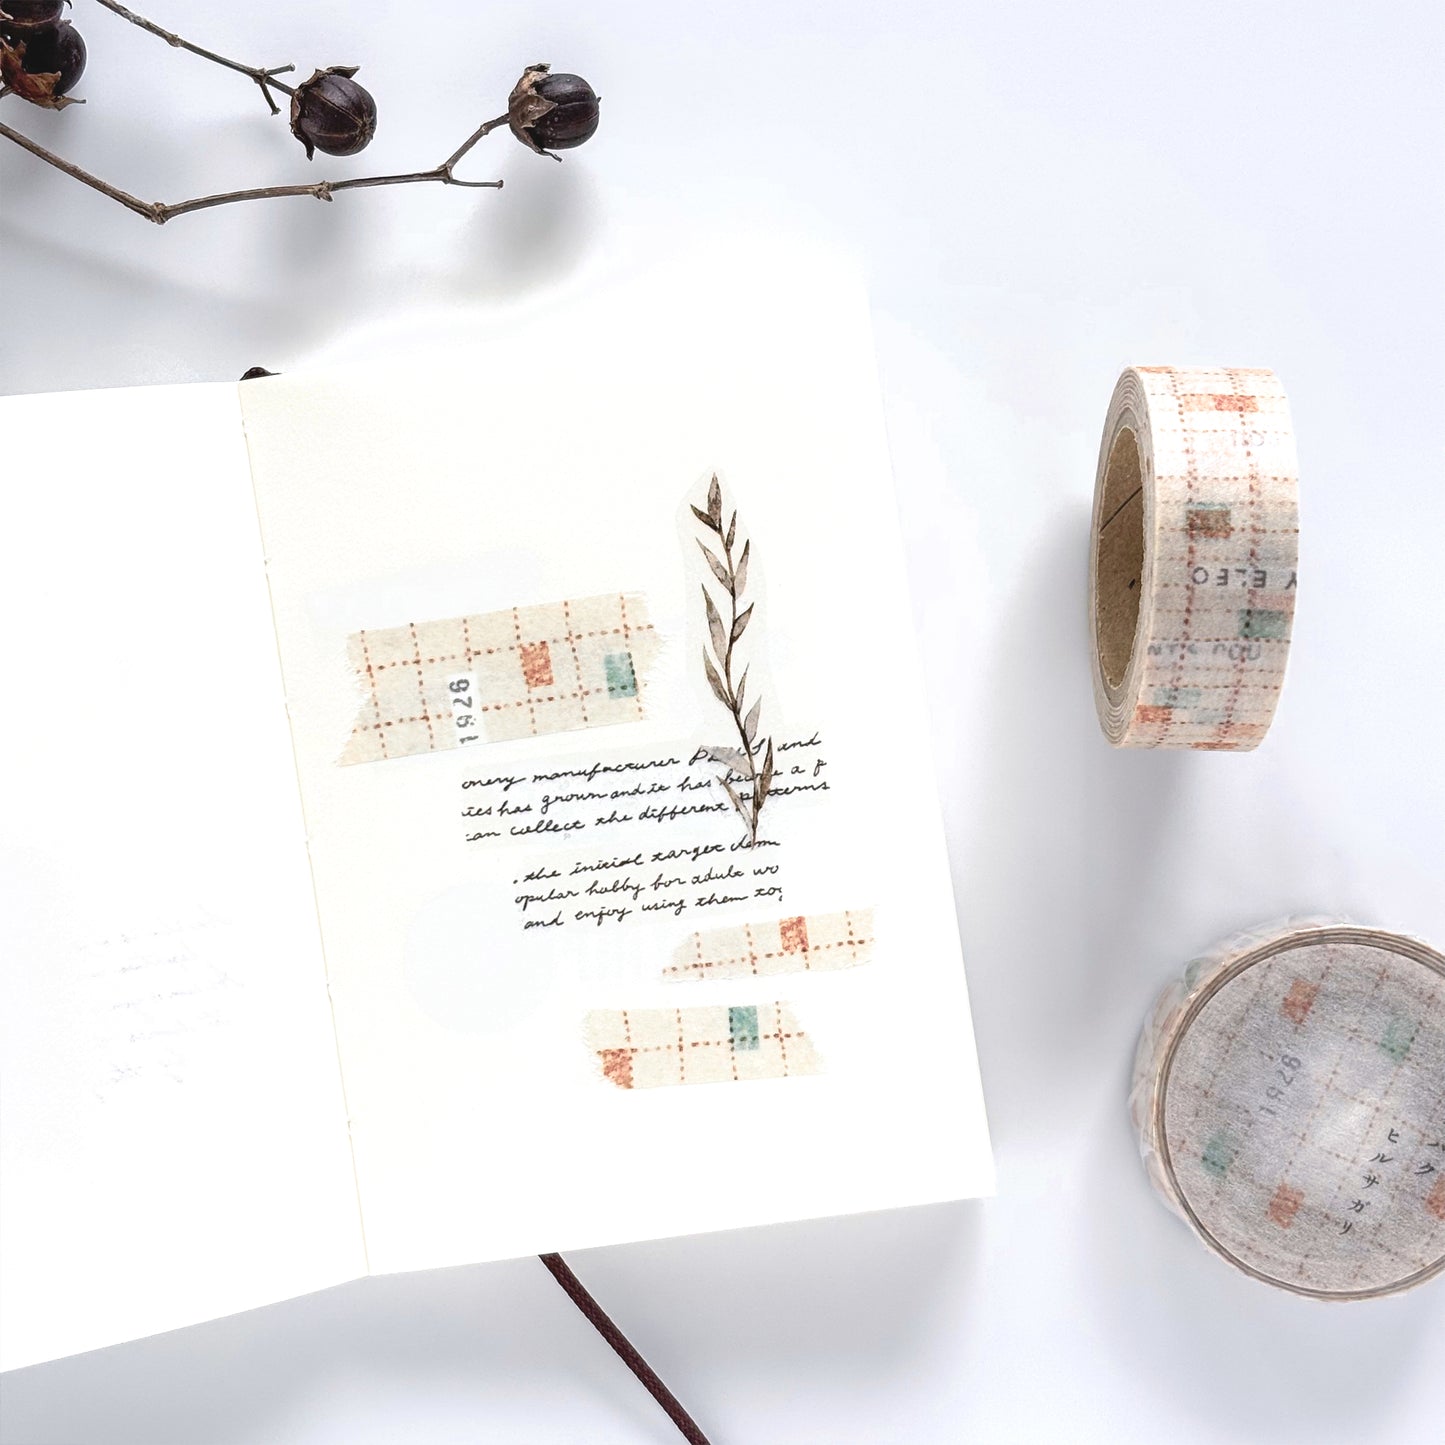 1976
onery manufacturer and
ies has grown and it has a p
can collect the different patterns
the initial target dem
opular hobby for adult wo
and enjoy using them tog
Y ELEO
1976
ヒルサガリ